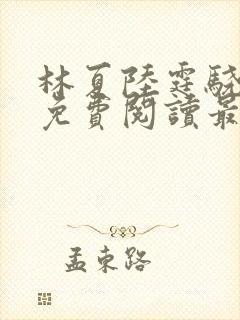 林夏陸霆驍
免費閱讀最
孟東路